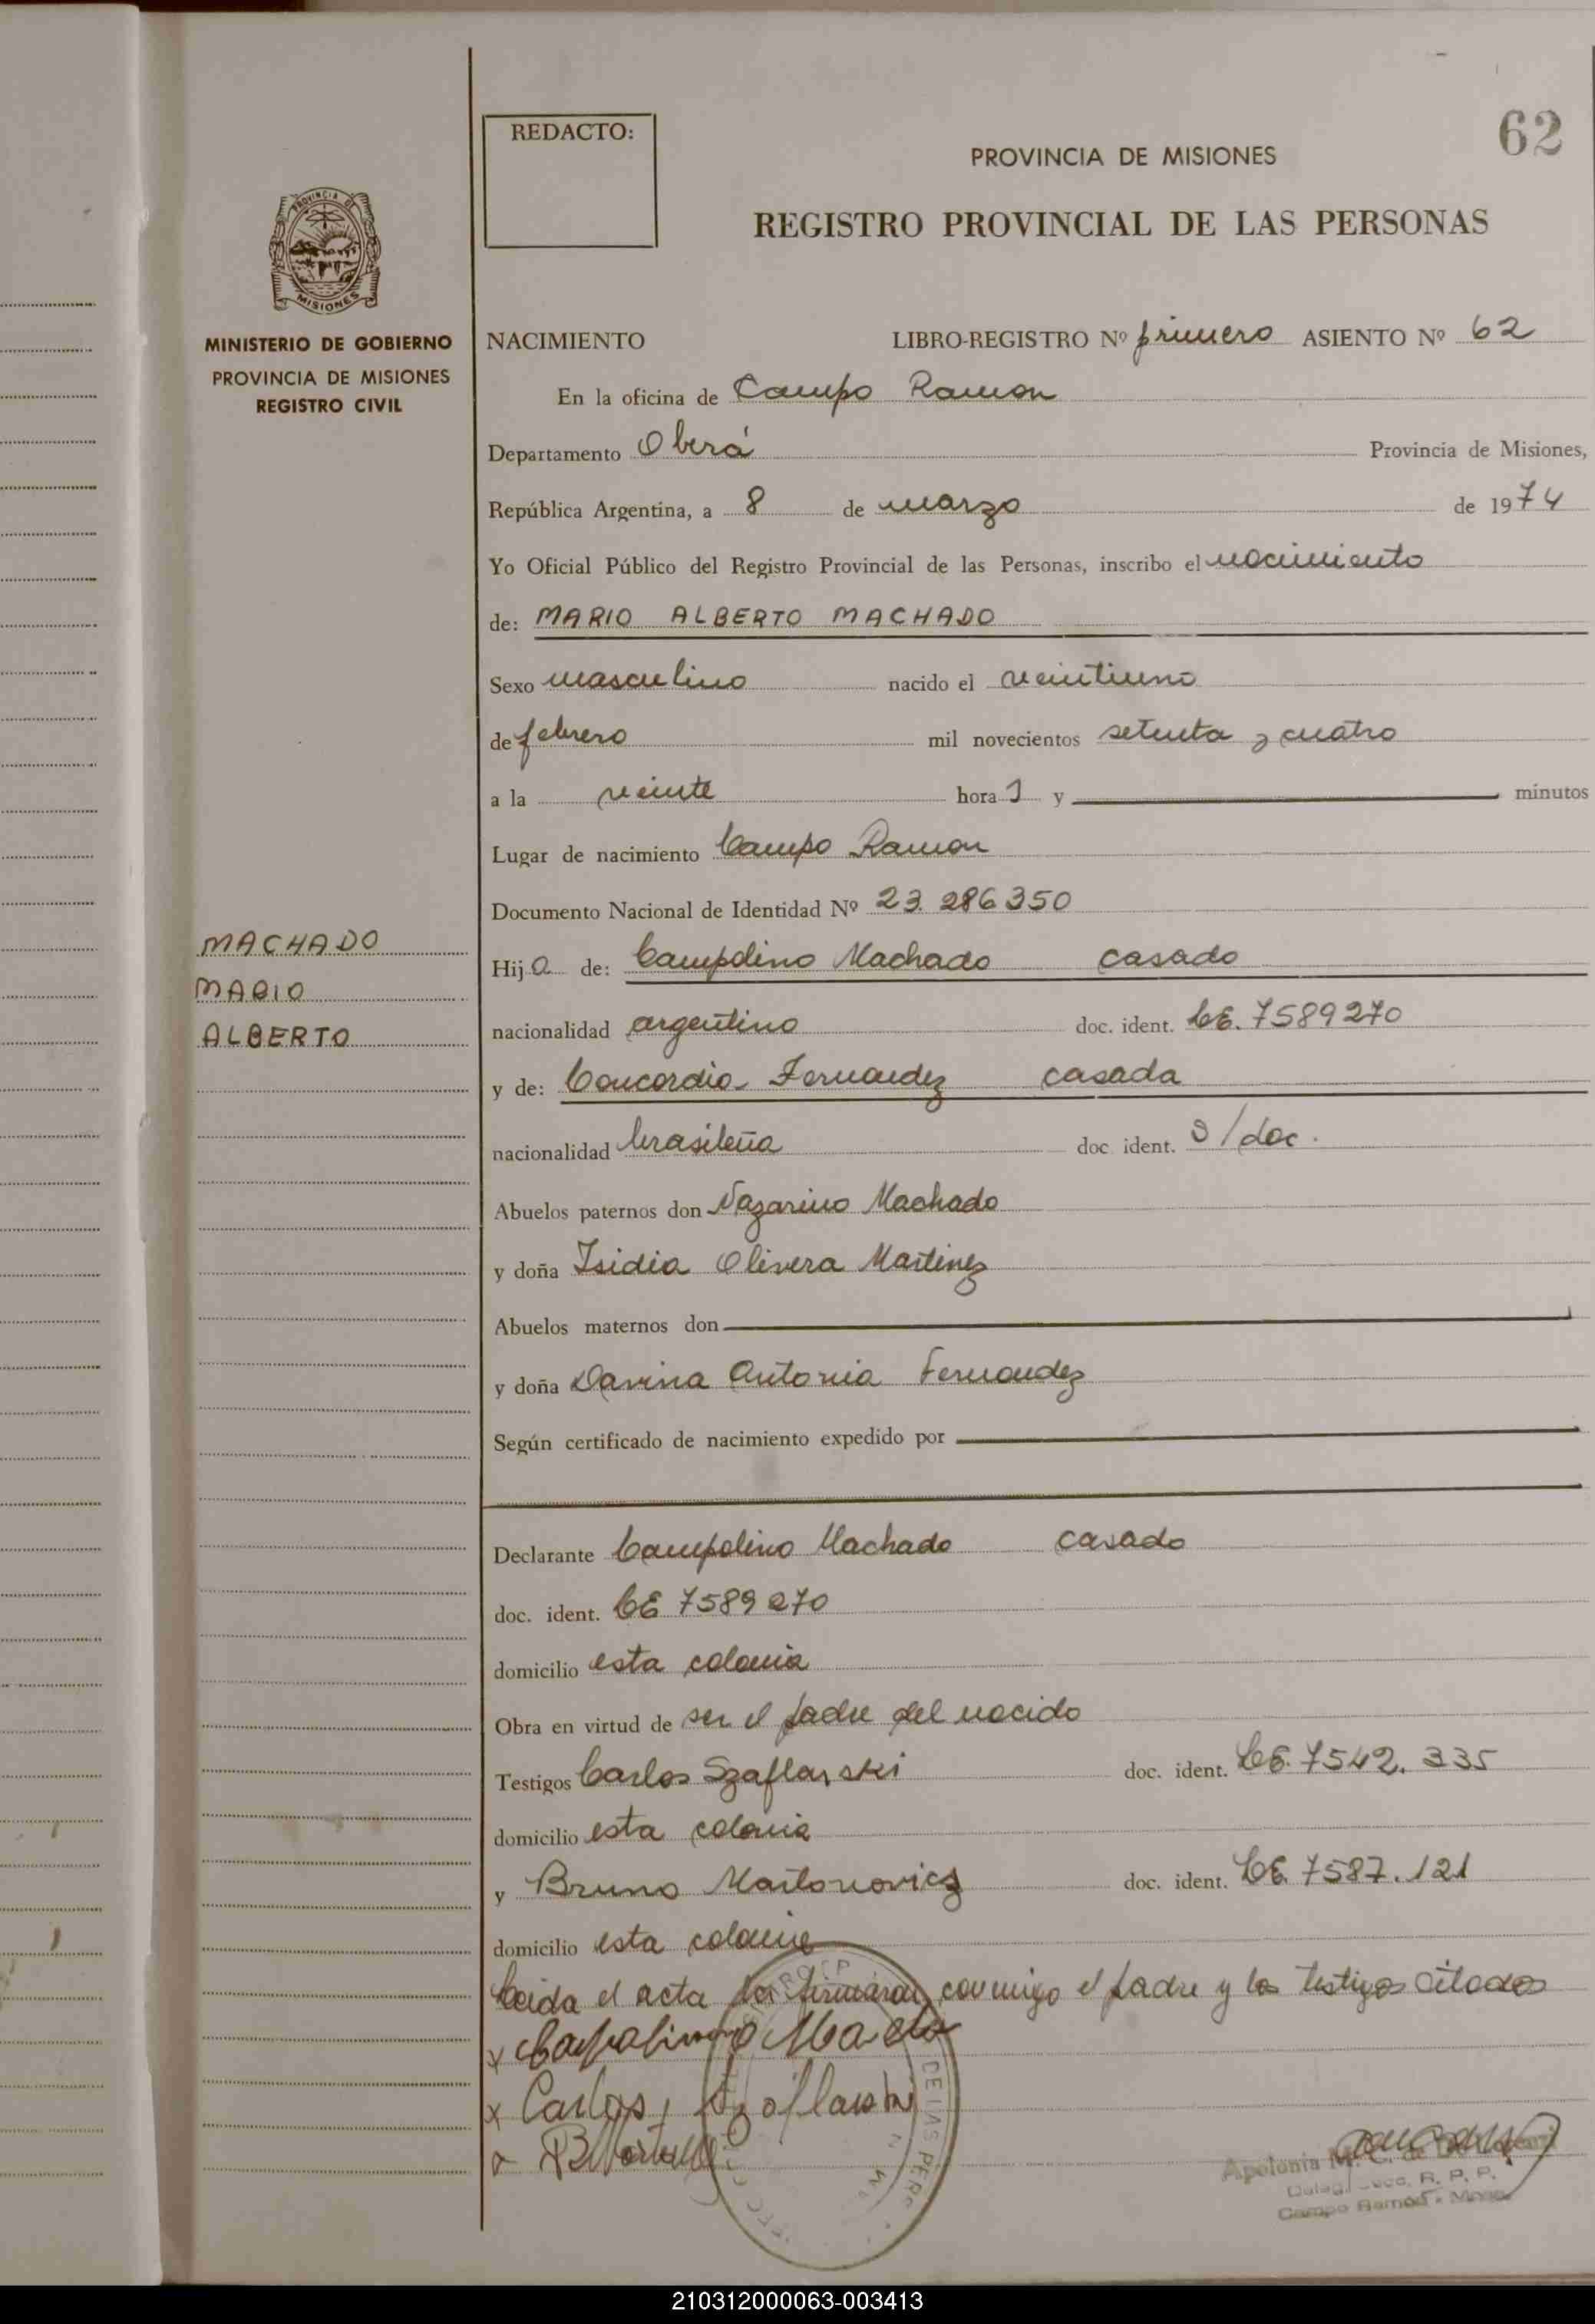 REDACTO:
62
PROVINCIA DE MISIONES
REGISTRO PROVINCIAL DE LAS PERSONAS
PROVINCIA DE
MISIONES
MINISTERIO DE GOBIERNO
PROVINCIA DE MISIONES
REGISTRO CIVIL
NACIMIENTO LIBRO-REGISTRO Nº primero ASIENTO Nº 62
En la oficina de Campo Ramon
Departamento Oberá Provincia de Misiones,
República Argentina, a 8 de marzo de 1974
Yo Oficial Público del Registro Provincial de las Personas, inscribo el nacimiento
de: MARIO ALBERTO MACHADO
Sexo masculino nacido el veintiuno
de febrero mil novecientos setenta y cuatro
a la veinte hora s y minutos
Lugar de nacimiento Campo Ramon
Documento Nacional de Identidad Nº 23.286350
MACHADO
MARIO
ALBERTO
Hijo de: Campolino Machado casado
nacionalidad argentino doc. ident. CE. 7589270
y de: Concordia Fernandez casada
nacionalidad brasileña doc. ident. S/doc.
Abuelos paternos don Nazarino Machado
y doña Isidia Olivera Martinez
Abuelos maternos don
y doña Davina Antonia Fernandez
Según certificado de nacimiento expedido por
Declarante Campolino Machado casado
doc. ident. CE 7589270
domicilio esta colonia
Obra en virtud de ser el padre del nacido
Testigos Carlos Szaflarski doc. ident. CE. 7542.335
domicilio esta colonia
y Bruno Martonovicz doc. ident. CE. 7587.121
domicilio esta colonia
Leida el acta la firmaron conmigo el padre y los testigos citados
x
x Carlos Szaflarski
x
DE LAS PERS
Apolonia M. C. de
R. P. P.
Campo Ramón - Mnes.
210312000063-003413